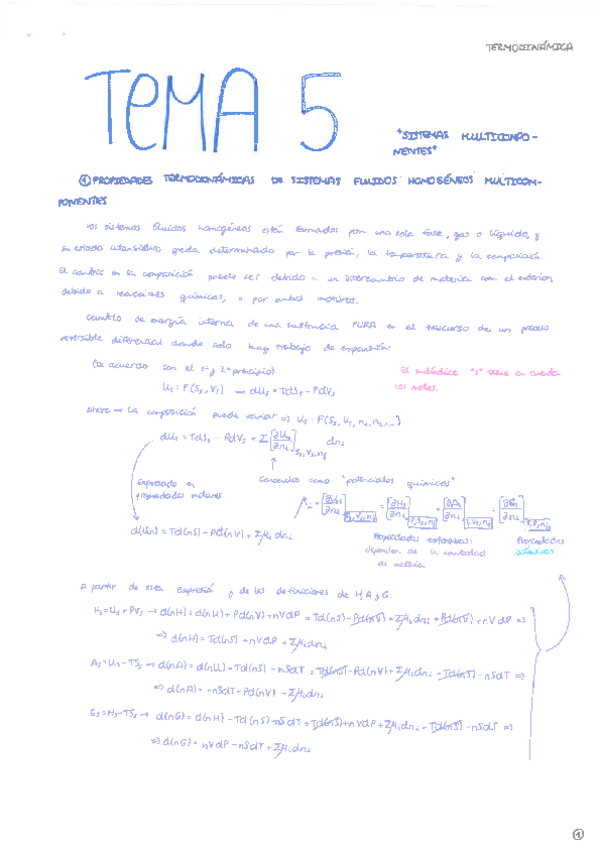 TERMODINÁMICA
TEMA 5
"SISTEMAS MULTICOMPO-
NENTES"
① PROPIEDADES TERMODINÁMICAS DE SISTEMAS FLUIDOS HOMOGÉNEOS MULTICOM-
PONENTES
Los sistemas fluidos homogéneos están formados por una sola fase, gas o líquido, y
su estado intensivo queda determinado por la presión, la temperatura y la composición.
El cambio en la composición puede ser debido a un intercambio de materia con el exterior,
debido a reacciones químicas, o por ambos motivos.
Cambio de energía interna de una sustancia PURA en el trascurso de un proceso
reversible diferencial donde solo hay trabajo de expansión:
(De acuerdo con el 1º y 2º principio)
El subíndice "s" tiene en cuenta
los moles.
Us = F(Ss, Vs) → dUs = TdSs - PdVs
Ahora → La composición puede variar => Us = F(Ss, Vs, n1, n2, ...)
dUs = TdSs - PdVs + Σ [∂Us/∂ni]Ss,Vs,nj dni
Expresado en
propiedades molares
Conocidos como "potenciales químicos"
μi = [∂Us/∂ni]Ss,Vs,nj = [∂Hs/∂ni]P,Ss,nj = [∂As/∂ni]T,Vs,nj = [∂Gs/∂ni]T,P,nj
d(Un) = Td(nS) - Pd(nV) + Σμi dni
Propiedades extensivas:
dependen de la cantidad
de materia
Propiedades
intensivas
A partir de esta expresión y de las definiciones de H, A y G:
Hs = Us + PVs → d(nH) = d(nU) + Pd(nV) + nVdP = Td(nS) - Pd(nV) + Σμidni + Pd(nV) + nVdP =>
=> d(nH) = Td(nS) + nVdP + Σμidni
As = Us - TSs → d(nA) = d(nU) - Td(nS) - nSdT = Td(nS) - Pd(nV) + Σμidni - Td(nS) - nSdT =>
=> d(nA) = -nSdT - Pd(nV) + Σμidni
Gs = Hs - TSs → d(nG) = d(nH) - Td(nS) - nSdT = Td(nS) + nVdP + Σμidni - Td(nS) - nSdT =>
=> d(nG) = nVdP - nSdT + Σμidni
①